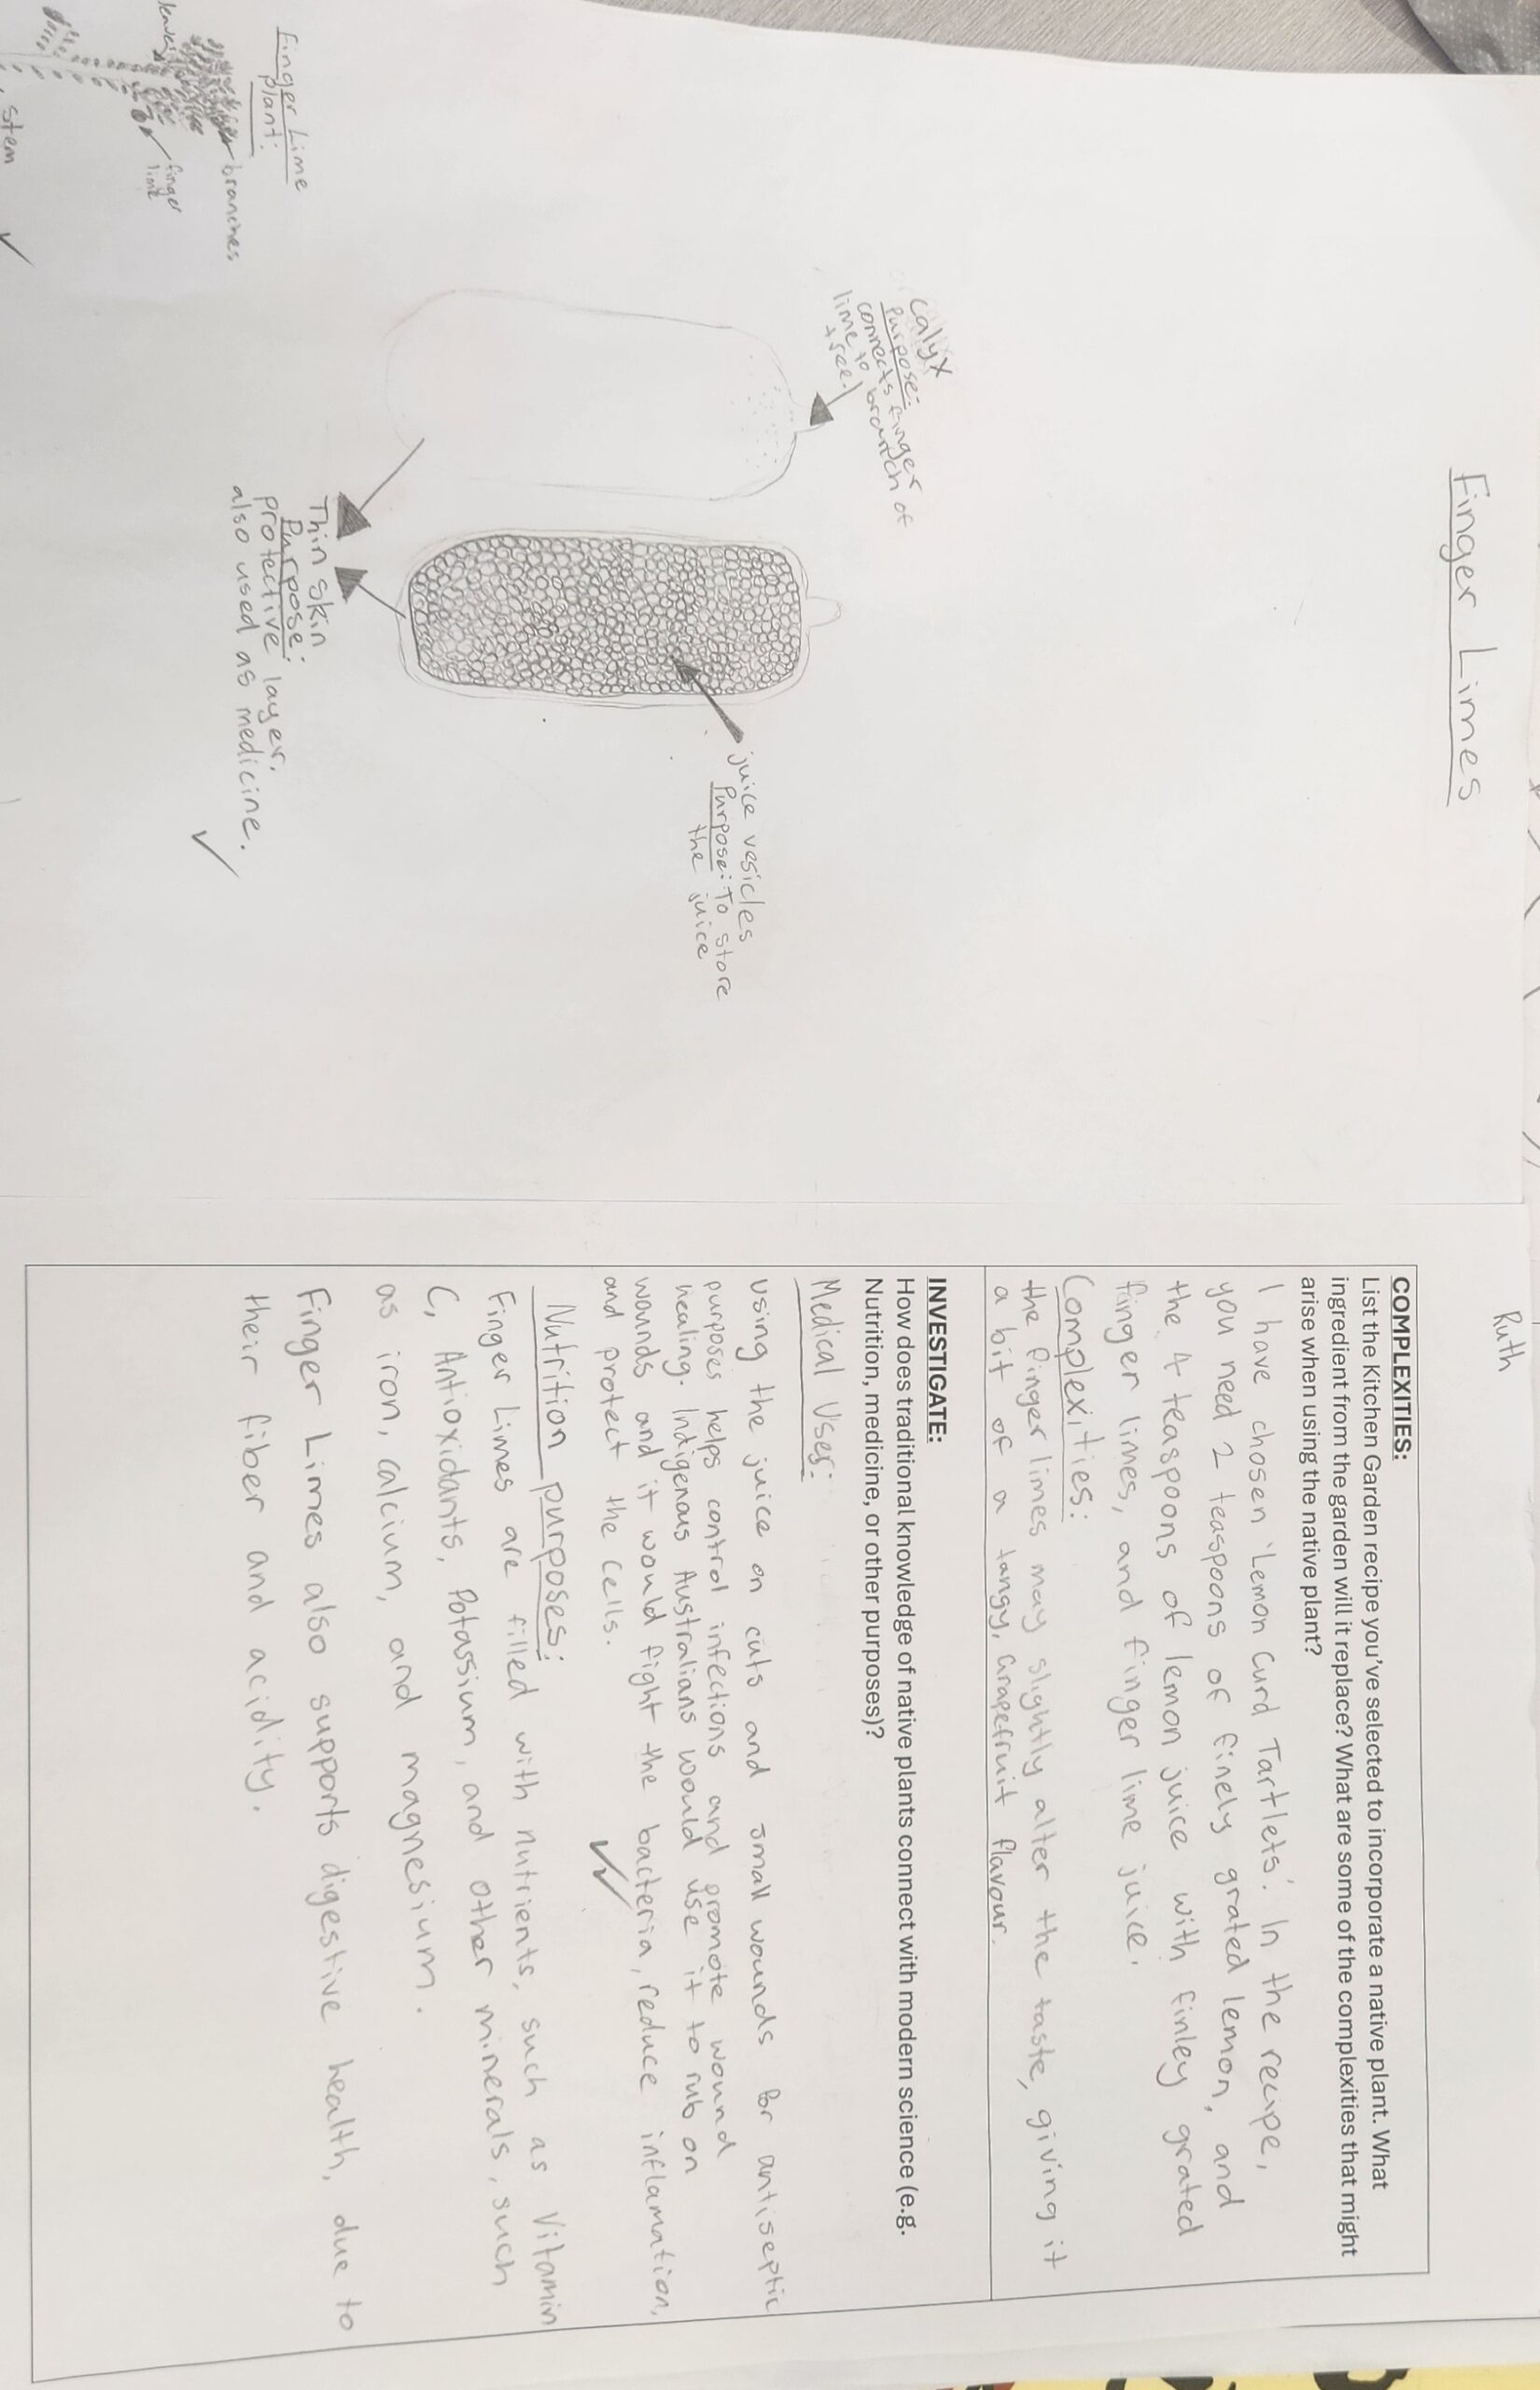 Finger Limes
calyx
Purpose:
connects finger
lime to branch of
tree
juice vesicles
Purpose: To store
the juice
Thin skin
Purpose:
protective layer,
also used as medicine.
Finger Lime
plant:
branches
leaves
finger
lime
stem
Ruth
COMPLEXITIES:
List the Kitchen Garden recipe you've selected to incorporate a native plant. What
ingredient from the garden will it replace? What are some of the complexities that might
arise when using the native plant?
I have chosen 'Lemon Curd Tartlets'. In the recipe,
you need 2 teaspoons of finely grated lemon, and
the 4 teaspoons of lemon juice with finley grated
finger limes, and finger lime juice.
Complexities:
the finger limes may slightly alter the taste, giving it
a bit of a tangy, grapefruit flavour.
INVESTIGATE:
How does traditional knowledge of native plants connect with modern science (e.g.
Nutrition, medicine, or other purposes)?
Medical Uses:
Using the juice on cuts and small wounds for antiseptic
purposes helps control infections and promote wound
healing. Indigenous Australians would use it to rub on
wounds and it would fight the bacteria, reduce inflamation,
and protect the cells.
Nutrition purposes:
Finger Limes are filled with nutrients, such as Vitamin
C, Antioxidants, Potassium, and other minerals, such
as iron, calcium, and magnesium.
Finger Limes also supports digestive health, due to
their fiber and acidity.